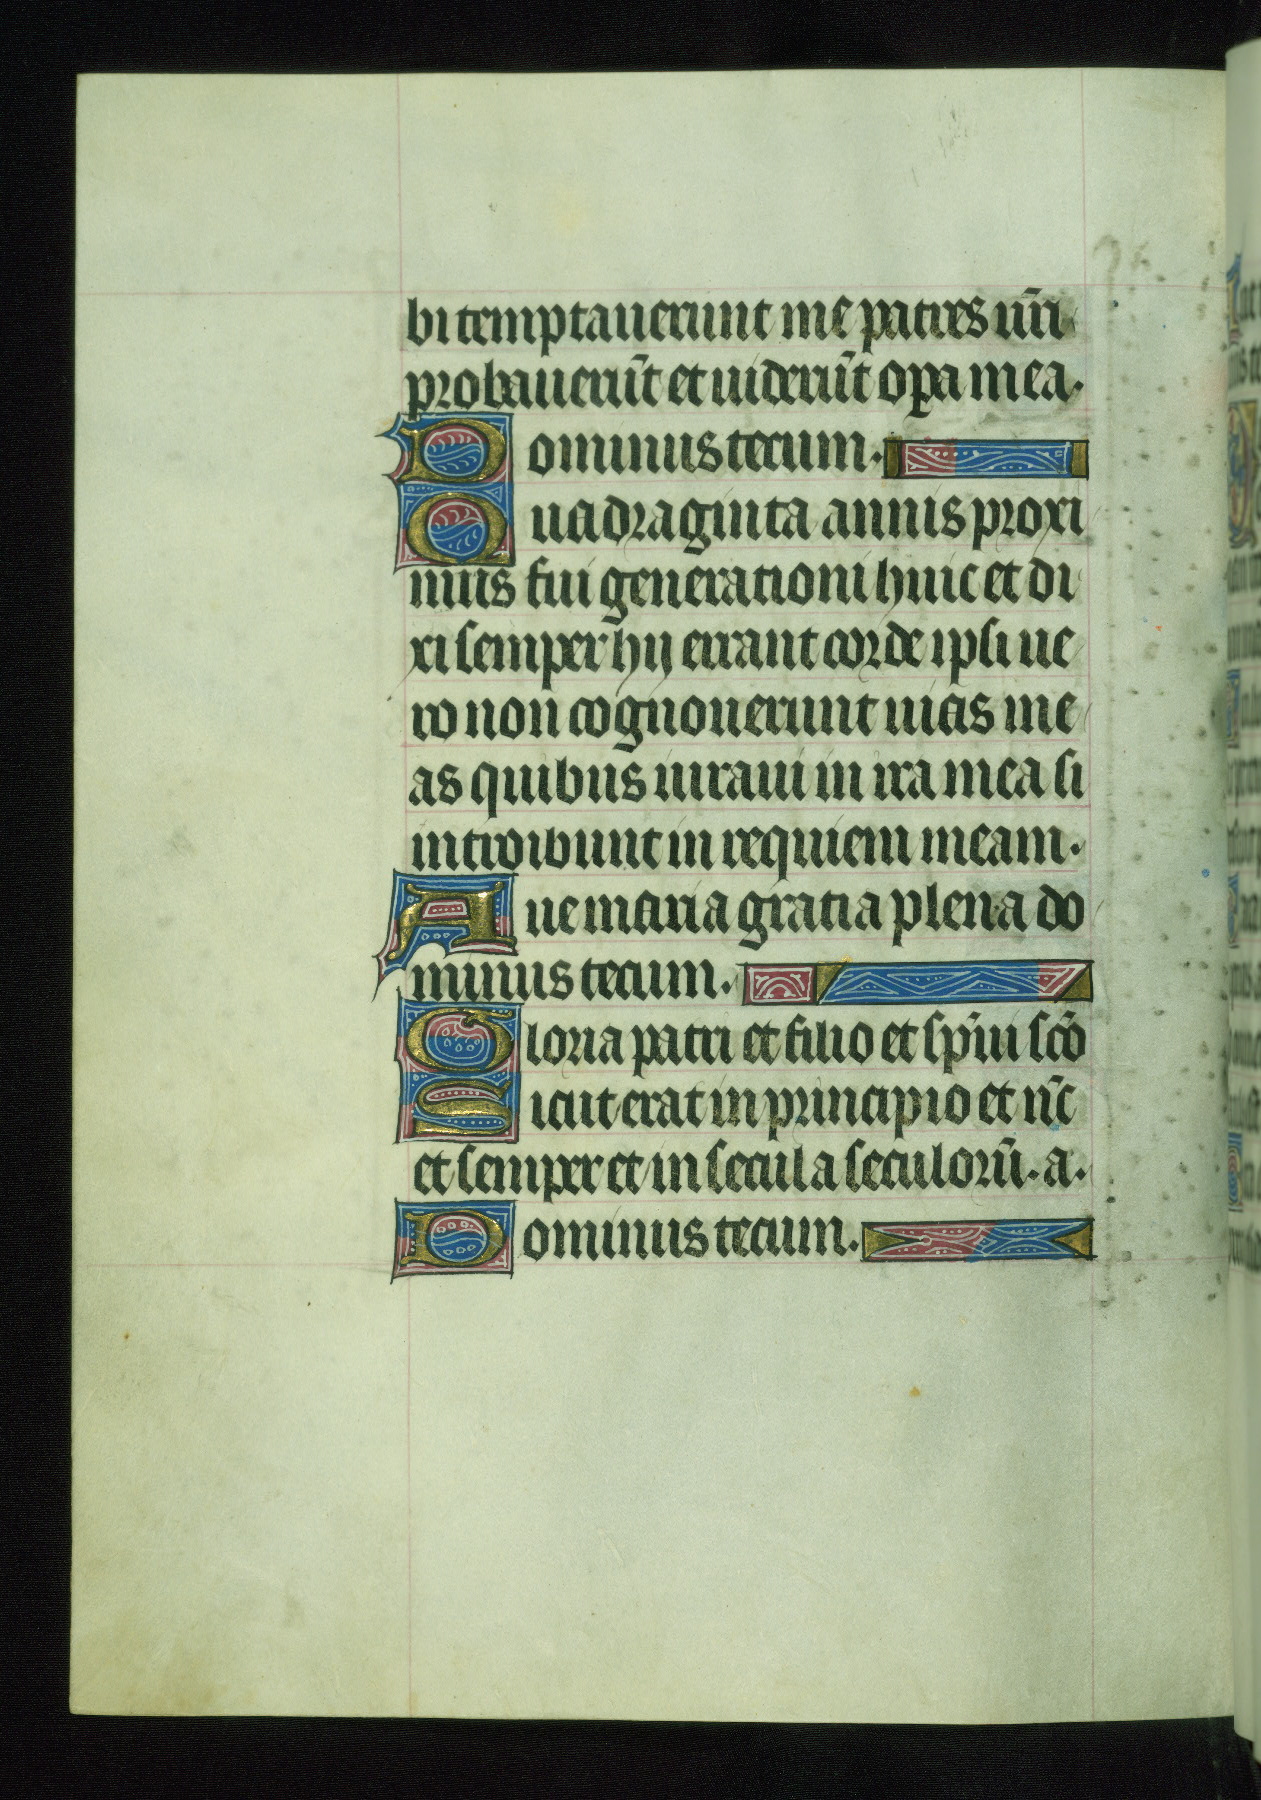 bi temptauerunt me patres ur̄i
probauerūt et uiderūt oꝑa mea.
Dominus tecum.
Quadraginta annis proxi
mus fui generationi huic et di
xi semper hij errant corde ipsi ue
ro non cognouerunt uias me
as quibus iuraui in ira mea si
introibunt in requiem meam.
Aue maria gratia plena do
minus tecum.
Gloria patri et filio et sp̄ui sc̄o
Sicut erat in principio et nc̄
et semper et in secula seculorū. a.
Dominus tecum.